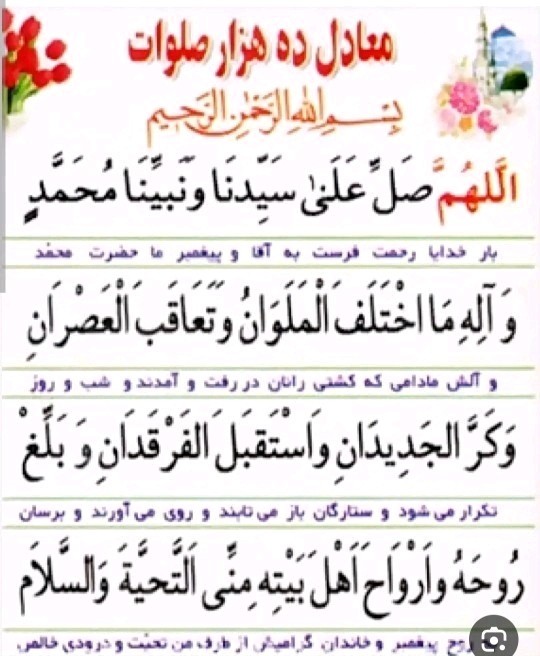 معادل ده هزار صلوات
بِسْمِ اللهِ الرَّحْمٰنِ الرَّحِيمِ
اَللّهُمَّ صَلِّ عَلَىٰ سَيِّدِنَا وَنَبِيِّنَا مُحَمَّدٍ
بار خدایا رحمت فرست به آقا و پیغمبر ما حضرت محمّد
وَ آلِهِ مَا اخْتَلَفَ الْمَلَوَانُ وَتَعَاقَبَ الْعَصْرَانِ
و آلش مادامی که کشتی رانان در رفت و آمدند و شب و روز
وَكَرَّ الجَدِيدَانِ وَاسْتَقبَلَ الفَرْقَدَانِ وَ بَلِّغْ
تکرار می شود و ستارگان باز می تابند و روی می آورند و برسان
رُوحَهُ وَاَرْوَاحَ اَهْلِ بَيْتِهِ مِنِّى اَلتَّحِيَّةَ وَالسَّلاَم
روح پیغمبر و خاندان گرامیش از طرف من تحیّت و درودی خالص